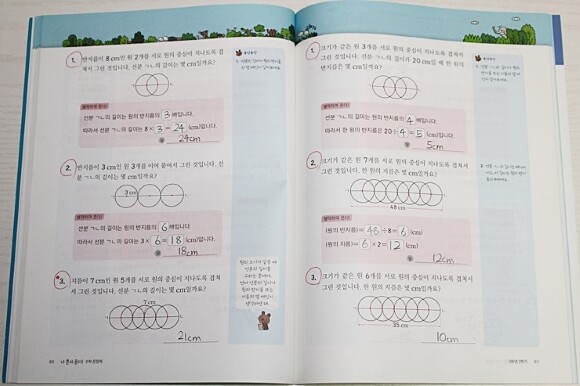 1. 반지름이 8 cm인 원 2개를 서로 원의 중심이 지나도록 겹쳐
서 그린 것입니다. 선분 ㄱㄴ의 길이는 몇 cm일까요?
선분 ㄱㄴ의 길이는 원의 반지름의 3 배입니다.
따라서 선분 ㄱㄴ의 길이는 8 × 3 = 24 (cm)입니다.
24cm
2. 반지름이 3 cm인 원 3개를 이어 붙여서 그린 것입니다. 선
분 ㄱㄴ의 길이는 몇 cm일까요?
3 cm
선분 ㄱㄴ의 길이는 원의 반지름의 6 배입니다.
따라서 선분 ㄱㄴ의 길이는 3 × 6 = 18 (cm)입니다.
18cm
3. 지름이 7 cm인 원 5개를 서로 원의 중심이 지나도록 겹쳐
서 그린 것입니다. 선분 ㄱㄴ의 길이는 몇 cm일까요?
7 cm
21cm
1. 크기가 같은 원 3개를 서로 원의 중심이 지나도록 겹쳐서
그린 것입니다. 선분 ㄱㄴ의 길이가 20 cm일 때 한 원의
반지름은 몇 cm일까요?
선분 ㄱㄴ의 길이는 원의 반지름의 4 배입니다.
따라서 한 원의 반지름은 20 ÷ 4 = 5 (cm)입니다.
5cm
2. 크기가 같은 원 7개를 서로 원의 중심이 지나도록 겹쳐서
그린 것입니다. 한 원의 지름은 몇 cm일까요?
48 cm
(원의 반지름) = 48 ÷ 8 = 6 (cm)
(원의 지름) = 6 × 2 = 12 (cm)
12cm
3. 크기가 같은 원 6개를 서로 원의 중심이 지나도록 겹쳐서
그린 것입니다. 한 원의 지름은 몇 cm일까요?
35 cm
10cm